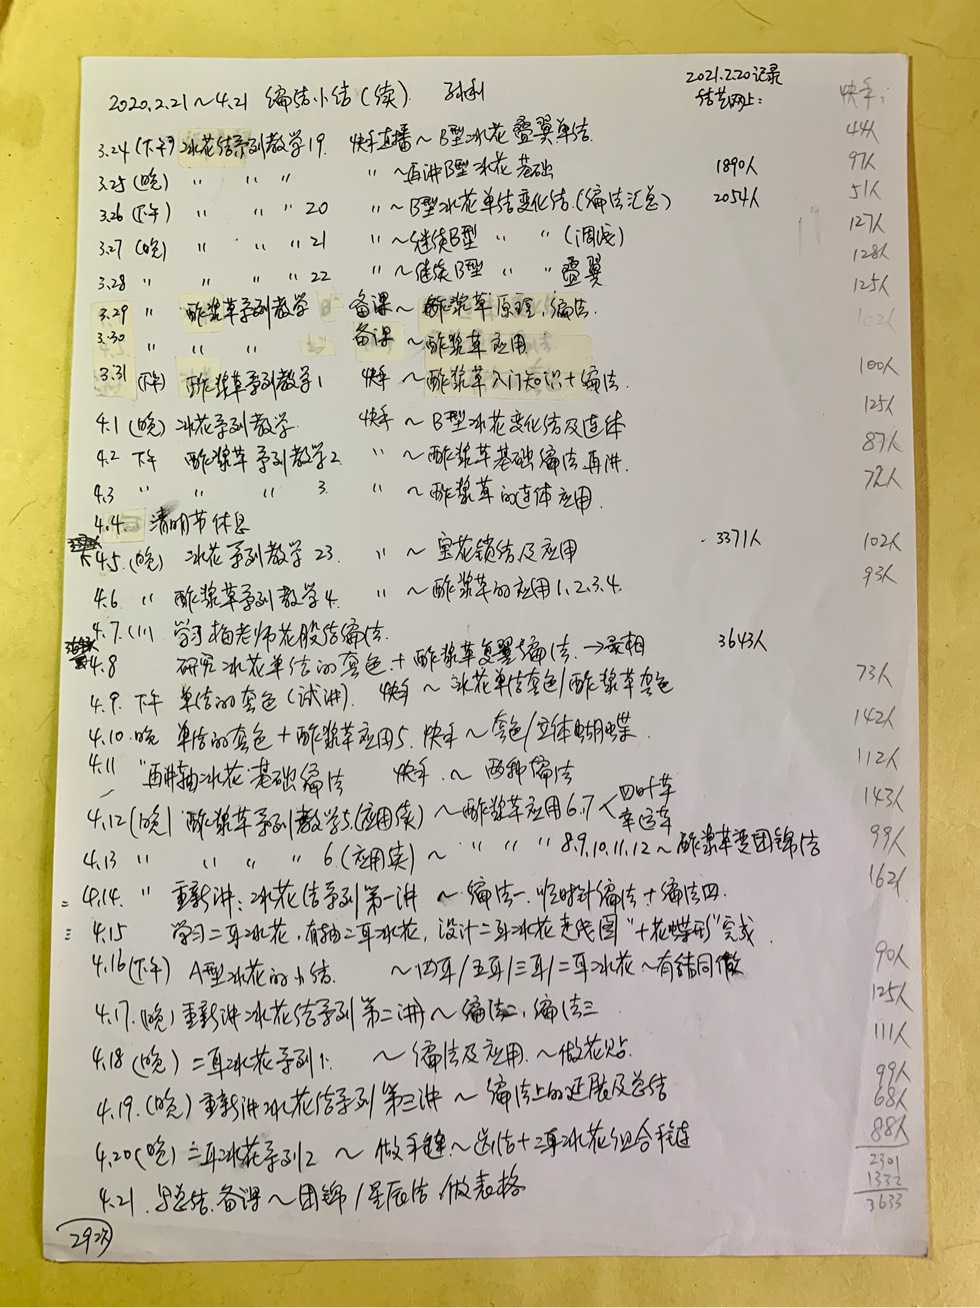 2020.2.21～4.21 编结小结(续) 2021.2.20记录
结艺网上: 快手:
3.24 (下午) 冰花结系列教学19. 快手直播～B型冰花叠翼单结. 44人
3.25 (晚) 〃 〃 〃 〃～再讲B型冰花基础 1890人 97人
3.26 (下午) 〃 〃 〃 20 〃～B型冰花单结变化结.(编法汇总) 2054人 51人
3.27 (晚) 〃 〃 〃 21 〃～继续B型 〃 〃 127人
3.28 〃 〃 〃 〃 22 〃～继续B型 〃 〃 叠翼 128人
125人
3.29 〃 酢浆草系列教学 备课～酢浆草原理、编法. 102人
3.30 〃 〃 〃 备课～酢浆草应用
3.31 (下午) 酢浆草系列教学1 快手～酢浆草入门知识+编法. 100人
4.1 (晚) 冰花系列教学. 快手～B型冰花变化结及连体 125人
4.2 下午 酢浆草系列教学2. 〃～酢浆草基础编法再讲. 87人
4.3 〃 〃 〃 3. 〃～酢浆草的连体应用. 72人
4.4. 清明节休息
4.5.(晚) 冰花系列教学23. 〃～宝花锁结及应用 3371人 102人
4.6 〃 酢浆草系列教学4. 〃～酢浆草的应用1.2.3.4. 93人
4.7.(〃) 学习梅老师花股结编法.
4.8 研究冰花单结的套色+酢浆草复翼编法.→ 3643人
4.9. 下午 单结的套色(试讲). 快手～冰花单结套色/酢浆草套色 73人
4.10. 晚 单结的套色+酢浆草应用5. 快手～套色/立体蝴蝶. 142人
4.11 "再讲轴冰花"基础编法 快手.～两种编法 112人
4.12 (晚) 酢浆草系列教学5.(应用续)～酢浆草应用6.7 四叶草 幸运草 143人
4.13 〃 〃 〃 〃 6(应用续)～ 〃 〃 〃 8.9.10.11.12～酢浆草变团锦结 99人
4.14. 〃 重新讲:冰花结系列第一讲 ～编法一.顺时针编法+编法四. 162人
4.15 学习二耳冰花,有轴二耳冰花,设计二耳冰花走线图"+花蝶形"完成.
4.16(下午) A型冰花的小结. ～四耳/五耳/三耳/二耳冰花～有结同做 90人
4.17.(晚) 重新讲冰花结系列第二讲～编法二,编法三 125人
4.18 (晚) 二耳冰花系列1. ～编法及应用.～做花贴. 111人
4.19.(晚) 重新讲冰花结系列第三讲～编法上的延展及总结 99人
68人
4.20(晚) 二耳冰花系列2～做手链～单结+二耳冰花组合手链 88人
2301
4.21. 总结.备课～团锦/星辰结.做表格 1332
3633
29次